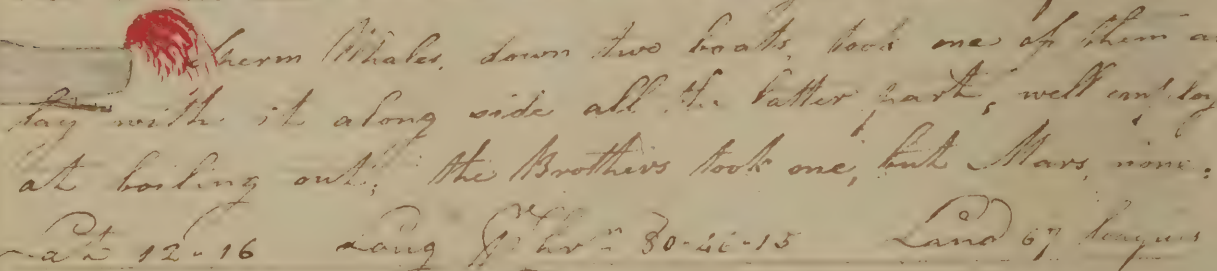 herm Whales, down two boats, took one of them a
lay with it along side all the latter part, well employ
at boiling out; the Brothers took one, but Mars, none.
Latt 12-16 Long Pr Chrr 80-41-15 Land 67 leagues